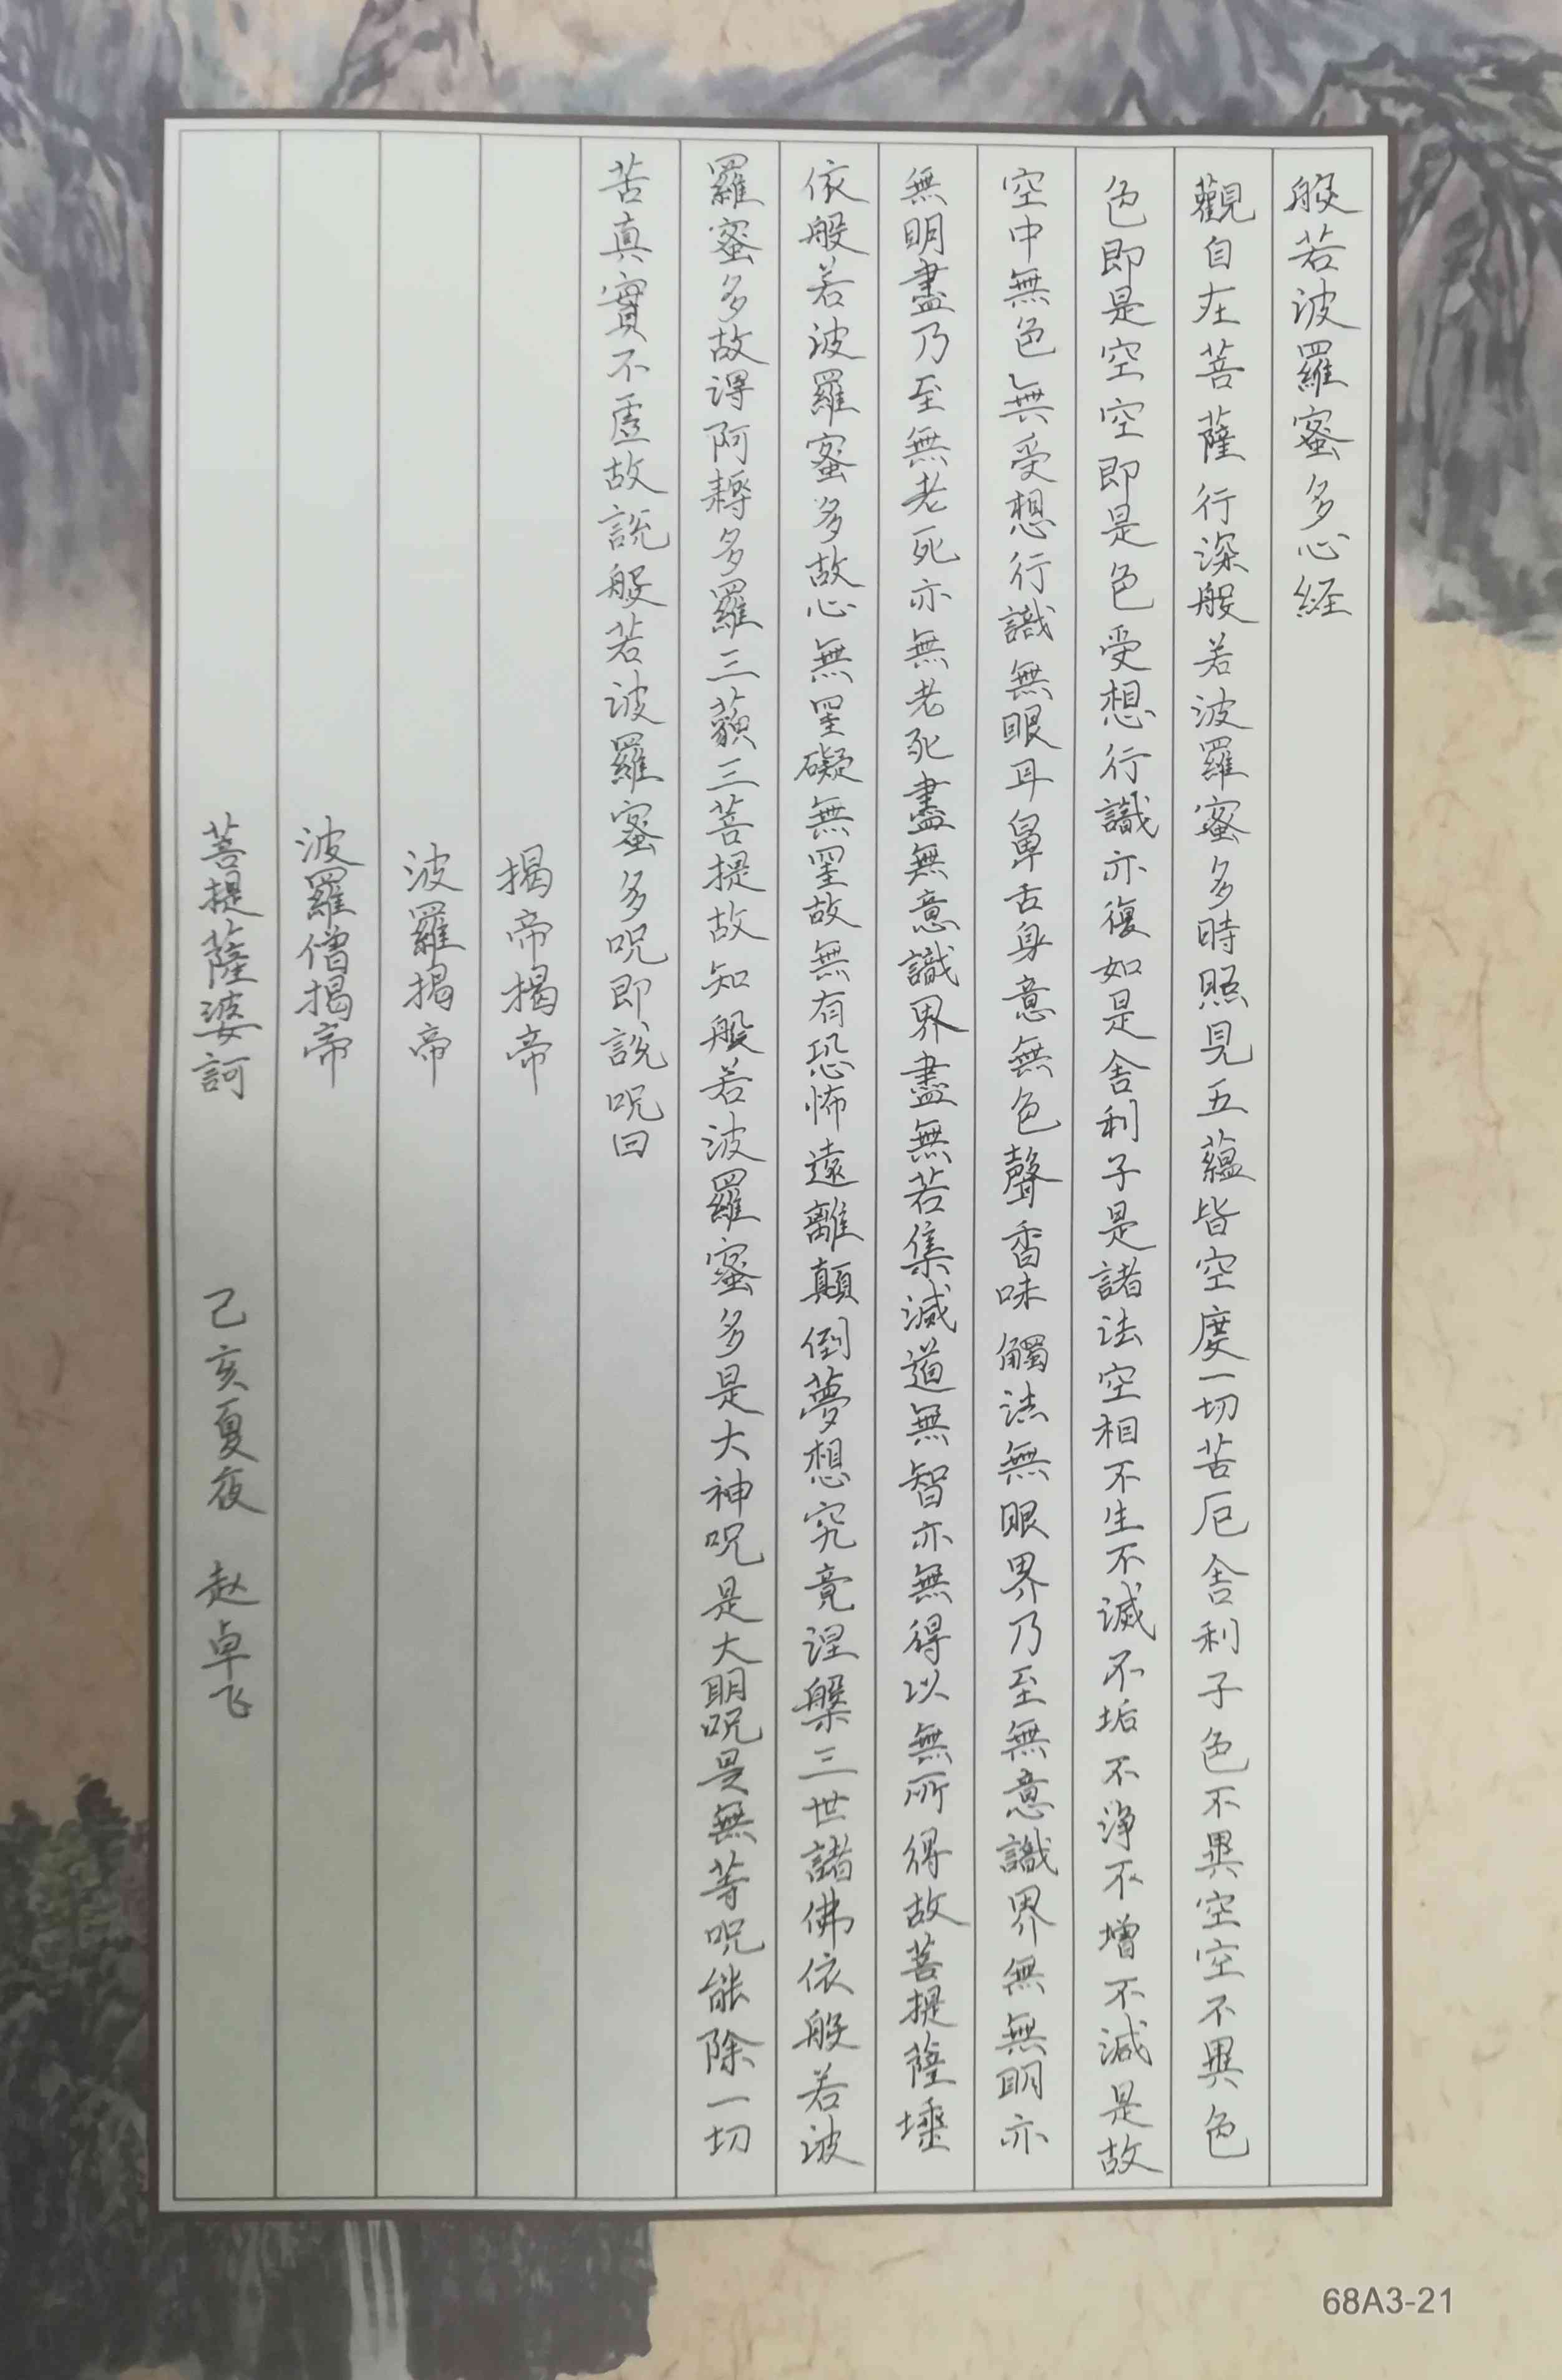 般若波羅蜜多心経
觀自在菩薩行深般若波羅蜜多時照見五蘊皆空度一切苦厄舍利子色不異空空不異色
色即是空空即是色受想行識亦復如是舍利子是諸法空相不生不滅不垢不淨不增不減是故
空中無色無受想行識無眼耳鼻舌身意無色聲香味觸法無眼界乃至無意識界無無明亦
無明盡乃至無老死亦無老死盡無意識界盡無若集滅道無智亦無得以無所得故菩提薩埵
依般若波羅蜜多故心無罣礙無罣故無有恐怖遠離顛倒夢想究竟涅槃三世諸佛依般若波
羅蜜多故得阿耨多羅三藐三菩提故知般若波羅蜜多是大神呪是大明呪是無等呪能除一切
苦真實不虛故說般若波羅蜜多呪即說呪曰
揭帝揭帝
波羅揭帝
波羅僧揭帝
菩提薩婆訶 己亥夏夜 赵卓飞
68A3-21